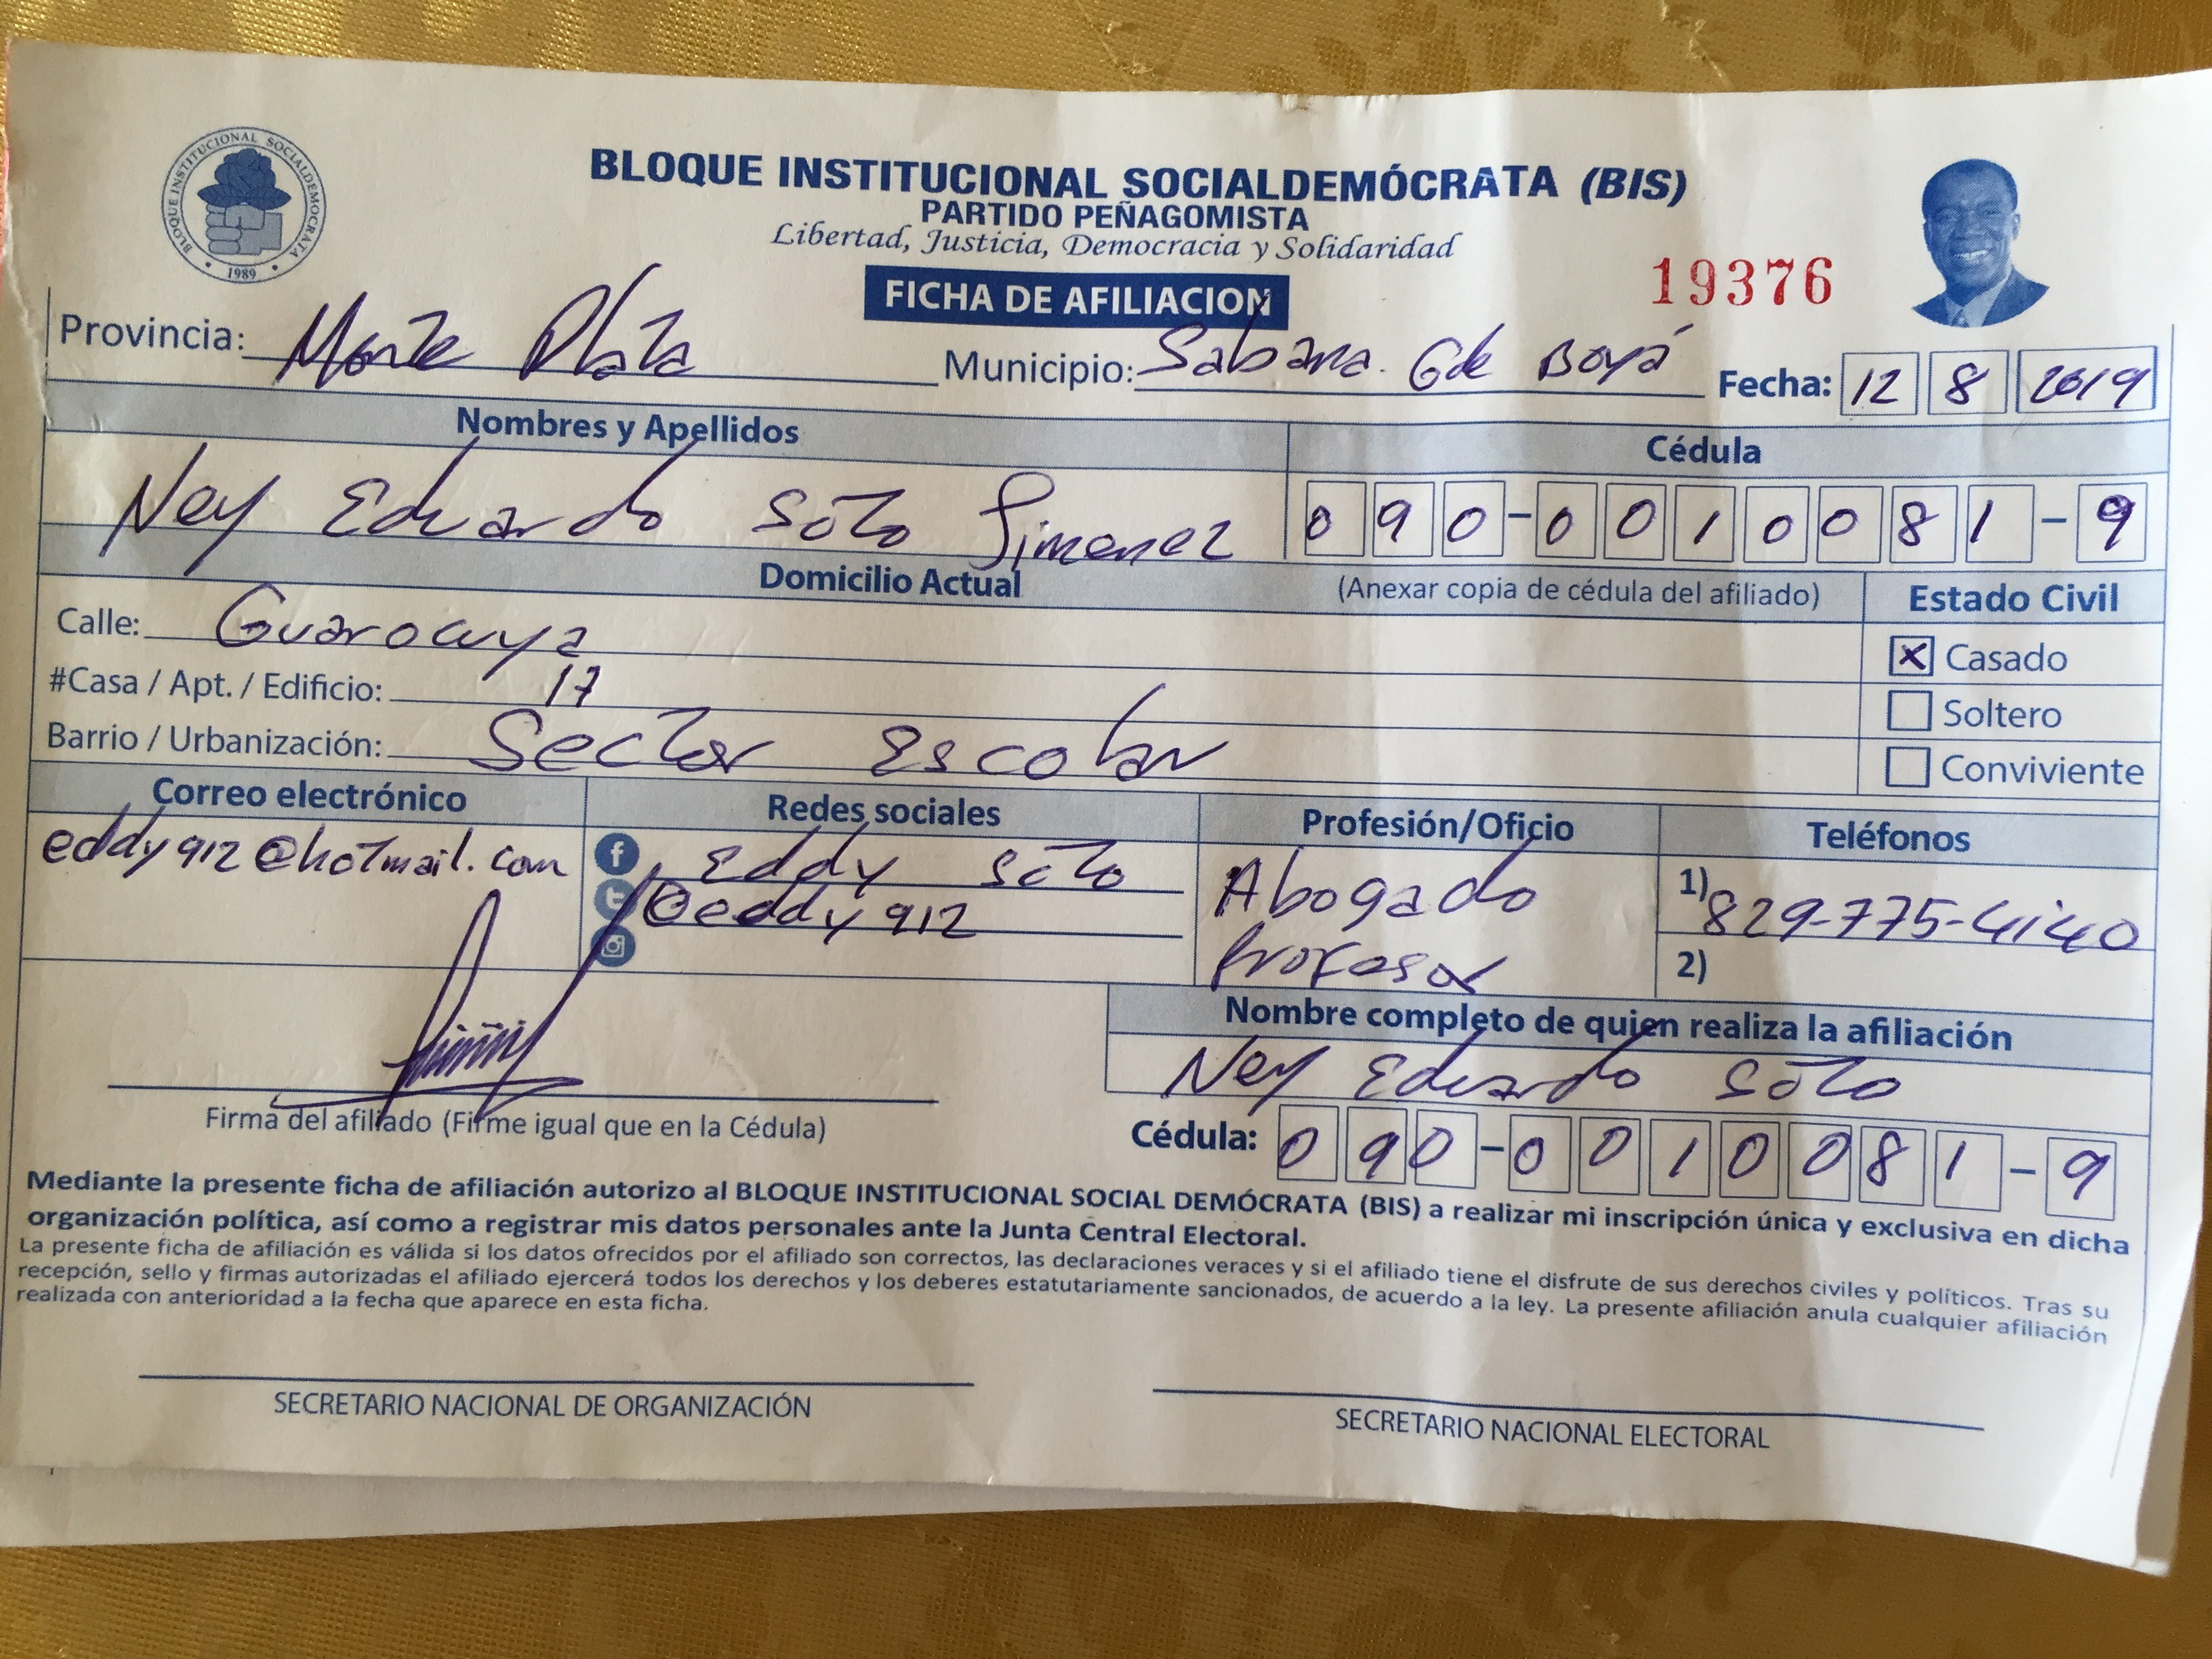 BLOQUE INSTITUCIONAL SOCIALDEMOCRATA
1989
BLOQUE INSTITUCIONAL SOCIALDEMÓCRATA (BIS)
PARTIDO PEÑAGOMISTA
Libertad, Justicia, Democracia y Solidaridad
FICHA DE AFILIACION
19376
Provincia: Monte Plata Municipio: Sabana Gde Boyá Fecha: 12 8 2019
Nombres y Apellidos Cédula
Ney Eduardo Soto Jimenez 090-0010081-9
Domicilio Actual (Anexar copia de cédula del afiliado) Estado Civil
Calle: Guarocuya
X Casado
#Casa / Apt. / Edificio: 17
Soltero
Barrio / Urbanización: Sector Escolar
Conviviente
Correo electrónico Redes sociales Profesión/Oficio Teléfonos
eddy912@hotmail.com Eddy Soto Abogado 1) 829-775-4140
@eddy912 Profesor 2)
Nombre completo de quien realiza la afiliación
Ney Eduardo Soto
Firma del afiliado (Firme igual que en la Cédula) Cédula: 090-0010081-9
Mediante la presente ficha de afiliación autorizo al BLOQUE INSTITUCIONAL SOCIAL DEMÓCRATA (BIS) a realizar mi inscripción única y exclusiva en dicha
organización política, así como a registrar mis datos personales ante la Junta Central Electoral.
La presente ficha de afiliación es válida si los datos ofrecidos por el afiliado son correctos, las declaraciones veraces y si el afiliado tiene el disfrute de sus derechos civiles y políticos. Tras su
recepción, sello y firmas autorizadas el afiliado ejercerá todos los derechos y los deberes estatutariamente sancionados, de acuerdo a la ley. La presente afiliación anula cualquier afiliación
realizada con anterioridad a la fecha que aparece en esta ficha.
SECRETARIO NACIONAL DE ORGANIZACIÓN SECRETARIO NACIONAL ELECTORAL